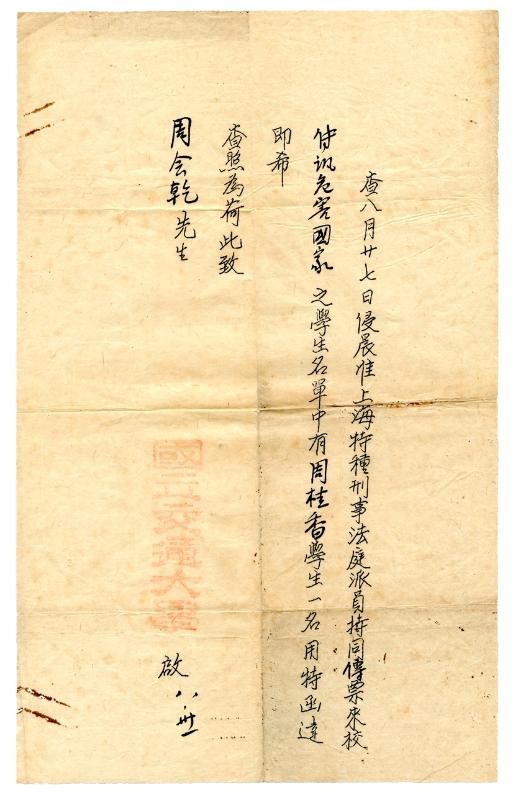 查八月廿七日侵晨准上海特種刑事法庭派員持同傳票來校
傳訊危害國家之學生名單中有周桂香學生一名用特函達
即希
查照為荷此致
周会乾先生
國立交通大學
啟八·卅一